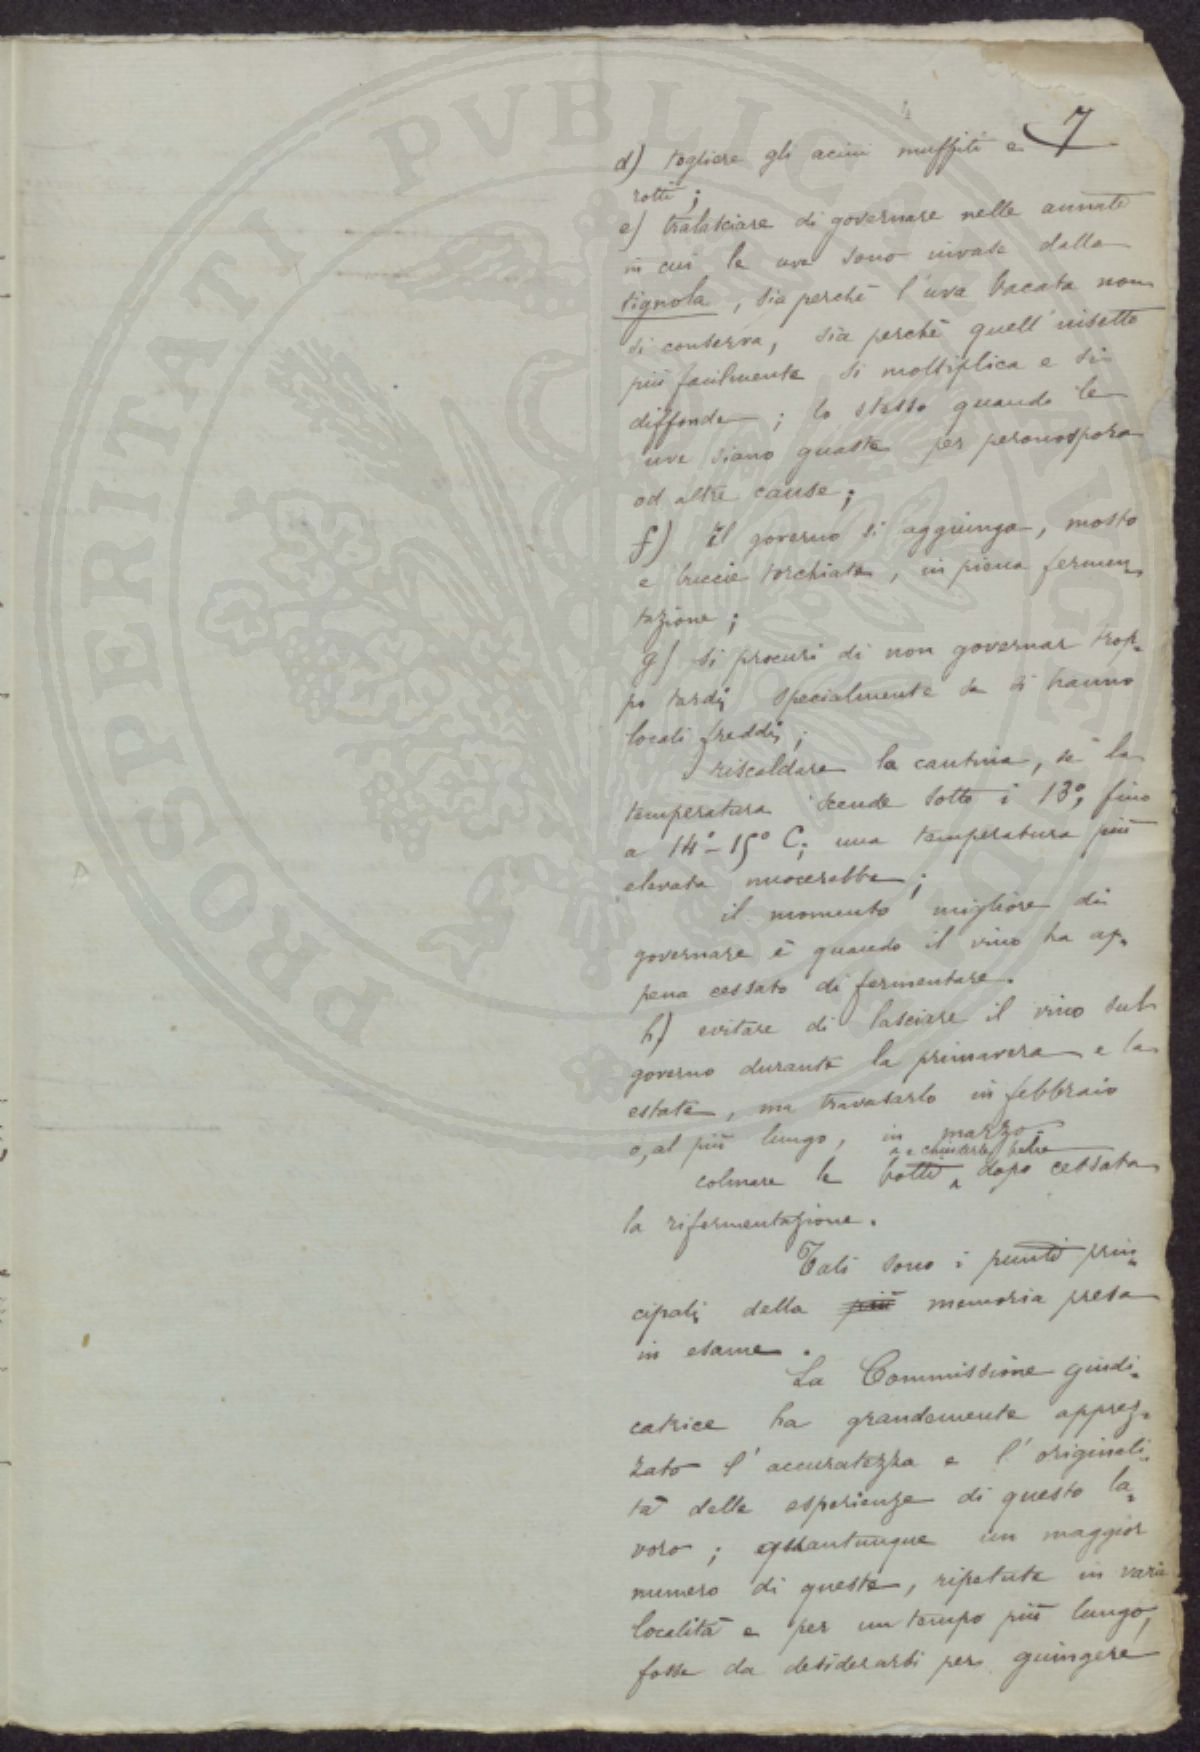 7
d) togliere gli acini muffiti e
rotti;
e) tralasciare di governare nelle annate
in cui le uve sono invase dalla
tignola, sia perchè l'uva bacata non
si conserva, sia perchè quell'insetto
più facilmente si moltiplica e si
diffonde; lo stesso quando le
uve siano guaste per peronospora
od altre cause;
f) il governo si aggiunga, mosto
e buccie torchiate, in piena fermen-
tazione;
g) si procuri di non governar trop-
po tardi, specialmente se si hanno
locali freddi;
riscaldare la cantina, se la
temperatura scende sotto i 13°, fino
a 14°-15° C; una temperatura più
elevata nuocerebbe;
il momento migliore di
governare è quando il vino ha ap-
pena cessato di fermentare.
h) evitare di lasciare il vino sul
governo durante la primavera e la
estate, ma travasarlo in febbraio
o, al più lungo, in marzo.
e chiuderle bene
colmare le botti dopo cessata
la rifermentazione.
Tali sono i punti prin-
cipali della più memoria presa
in esame.
La Commissione giudi-
catrice ha grandemente apprez-
zato l'accuratezza e l'originali-
tà delle esperienze di questo la-
voro; quantunque un maggior
numero di queste, ripetute in varie
località e per un tempo più lungo,
fosse da desiderarsi per giungere
PROSPERITATI PUBLICAE AUGENDAE